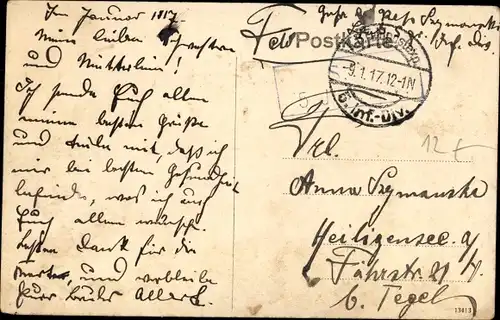 Im Januar 1917.
Meine lieben Schwestern
und Mütterlein!
Ich sende Euch allen
meine besten Grüße
und teile mit, daß ich
mir bei bester Gesundheit
befinde, was ich auch
Euch allen wünsche.
Besten Dank für die
und verbleibe
Euer Bruder Albert.
Postkarte
9.1.17.12-1N
5. Inf.-Div.
Frl.
Anna Szymanska
Heiligensee a/
Fährstr.
b. Tegel
12 €
13413